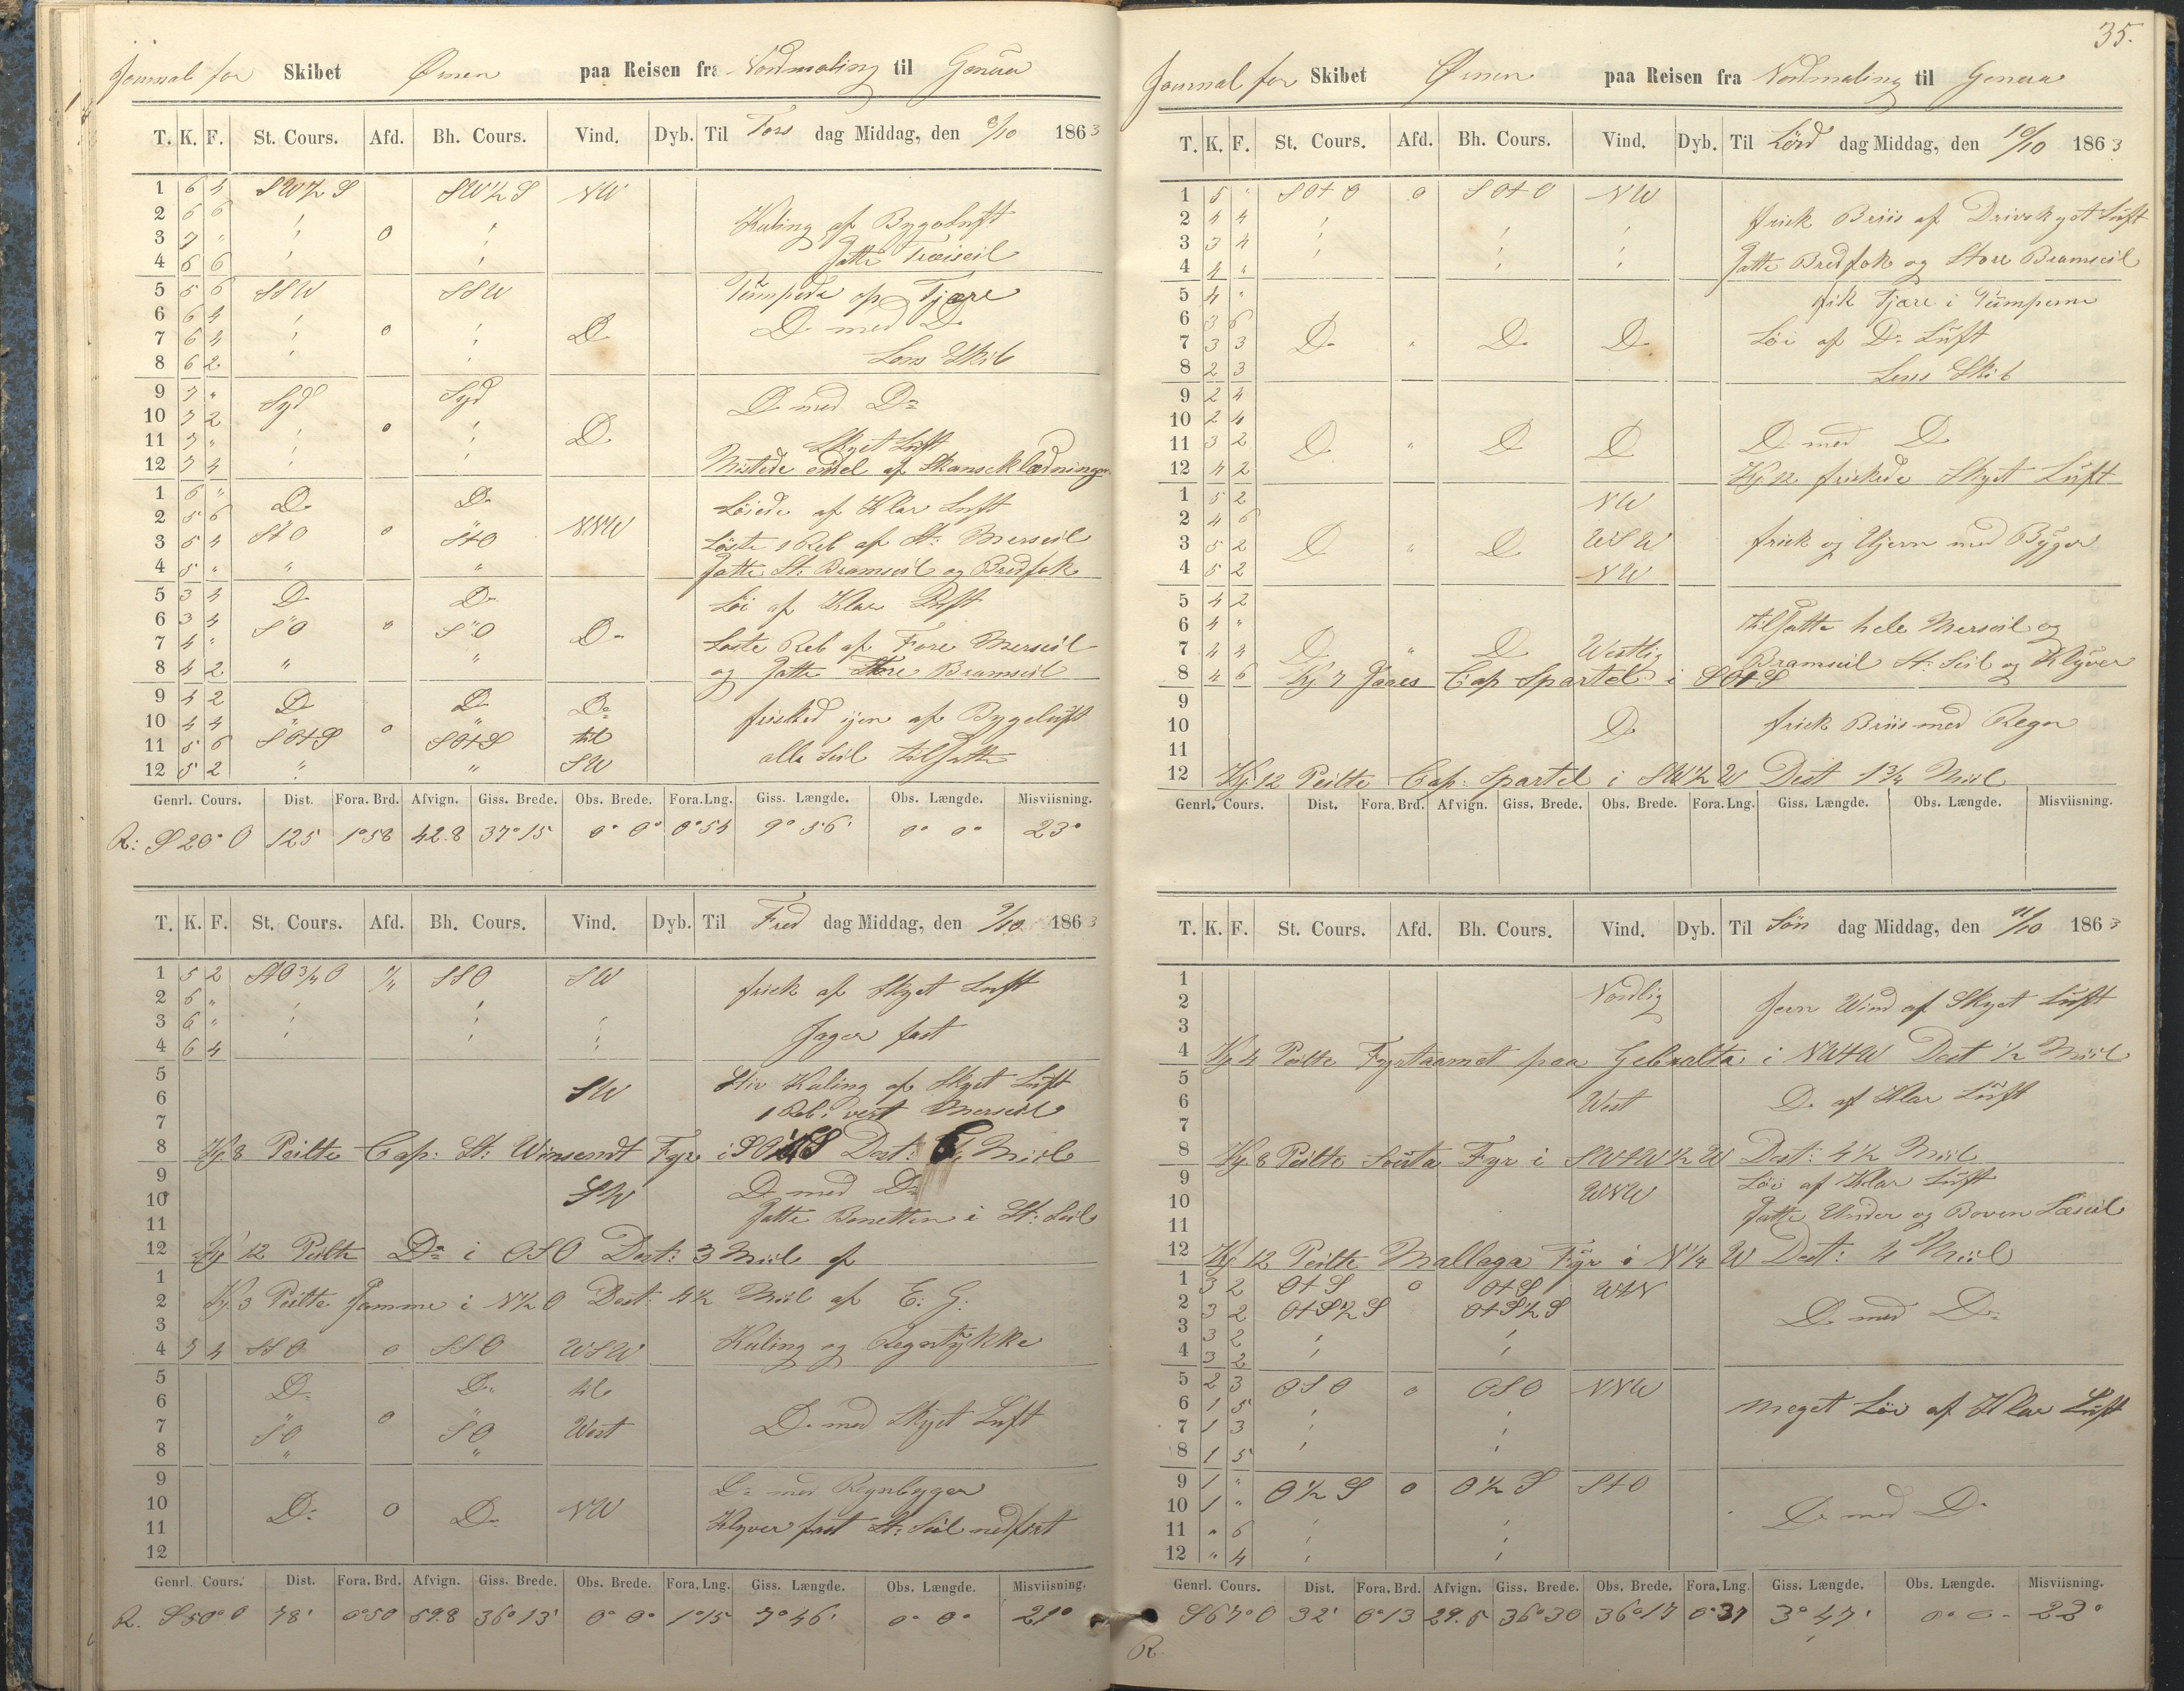 Journal for Skibet Ørnen paa Reisen fra Nordmaling til Genua
T. K. F. St. Cours. Afd. Bh. Cours. Vind. Dyb. Til Tors dag Middag, den 8/10 1863
1 6 4 SW½S SW½S NW
2 6 6 Kuling af Bygeluft
3 7 " 0
4 6 6 Satte Træiseil
5 5 6 SSW SSW Pumpede op Tjære
6 6 4 D. med D.
7 6 4 0 D.
8 6 2 Lens Skib
9 7 " Syd Syd D med Do
10 7 2 0
11 7 " D. Skyet Luft
12 7 4 Mistede endel af Skanseklædningen
1 6 " D. D. Løiede af Klar Luft
2 5 6 NNW
3 5 4 StO 0 StO Løste 1 Reb af St: Merseil
4 5 " " " Satte St: Bramseil og Bredfok
5 3 4 D. D. Løi af Klar Luft
6 3 4 SO " SO D.
7 4 " Løste Reb af Fore Merseil
8 4 2 " " og Satte Store Bramseil
9 4 2 D. D. Do
10 4 4 0 frisked igen af Bygeluft
11 5 6 SOtS SOtS til
12 5 2 " " SW alle Seil tilsatte
Genrl. Cours. Dist. Fora. Brd. Afvign. Giss. Brede. Obs. Brede. Fora. Lng. Giss. Længde. Obs. Længde. Misviisning.
R: S 20° O 125 1°58 42.8 37°15 0° 0° 0°54 9° 56' 0° 0° 23°
T. K. F. St. Cours. Afd. Bh. Cours. Vind. Dyb. Til Fred dag Middag, den 9/10 1863
1 5 2 StO¾O ¼ SSO SW
2 6 " frisk af Skyet Luft
3 6 "
4 6 4 Jager fast
5 Stiv Kuling af Skyet Luft
6 SW 1 Reb i vert Merseil
7
8 Kj. 8 Peilte Cap: St: Winsendt Fyr i SOtS Dest: Miil
9 D. med Do
10 SW
11 Satte Bonetten i St: Seil
12 Kj 12 Peilte Do i OSO Dest: 3 Miil af
1
2 Kj. 3 Peilte Samme i N½O Dest: 4½ Miil af E: G:
3
4 7 4 SSO 0 SSO WSW Kuling og Regntykke
5 D. D. til
6
7 SO 0 SO West D. med Skyet Luft
8 " "
9 Do med Regnbyger
10 D. 0 D. NW
11 Klyver fast St: Seil nedfirt
12
Genrl. Cours. Dist. Fora. Brd. Afvign. Giss. Brede. Obs. Brede. Fora. Lng. Giss. Længde. Obs. Længde. Misviisning.
R. S 50° O 78' 0°50 59.8 36°13' 0° 0° 1°15 7° 46' 0° 0° 21°
35.
Journal for Skibet Ørnen paa Reisen fra Nordmaling til Genua
T. K. F. St. Cours. Afd. Bh. Cours. Vind. Dyb. Til Lörd dag Middag, den 10/10 1863
1 5 " SOtO 0 SOtO NW
2 4 4 frisk Briis af Drivskyet Luft
3 3 4
4 4 " Satte Bredfok og Store Bramseil
5 4 " fik Tjære i Pumperne
6 3 6
7 3 3 D. " D. D. Løi af Do Luft
8 2 3 Lens Skib
9 2 4
10 2 4
11 3 2 D. " D. D D. med D
12 4 2 Kj. 12 friskede Skyet Luft
1 5 2 NW
2 4 6
3 5 2 D " D WSW frisk og Ujevn med Byger
4 5 2 NW
5 4 2
6 4 " tilsatte hele Merseil og
7 4 4 D " D Westlig Bramseil St: Seil og Klyver
8 4 6 Kj 7 Saaes Cap Spartel i SOtS
9
10 D. frisk Briis med Regn
11
12 Kj. 12 Peilte Cap: Spartel i SW½W Dest 1¾ Miil
Genrl. Cours. Dist. Fora. Brd. Afvign. Giss. Brede. Obs. Brede. Fora. Lng. Giss. Længde. Obs. Længde. Misviisning.
T. K. F. St. Cours. Afd. Bh. Cours. Vind. Dyb. Til Sön dag Middag, den 11/10 1863
1
2 Nordlig Jevn Wind af Skyet Luft
3
4 Kj. 4 Peilte Fyrtaarnet paa Gebralta i NWtW Dest ½ Miil
5
6 West D. af Klar Luft
7
8 Kj. 8 Peilte Fyr i SWtW½W Dest: 4½ Miil
9 Løi af Klar Luft
10 WNW
11 Satte Under og Boven Læseil
12 Kj. 12 Peilte Mallaga Fyr i N¼W Dest: 4 Miil
1 3 2 OtS 0 OtS WtN
2 3 2 OtS½S OtS½S D. med Do
3 3 2
4 3 2
5 2 3 OSO 0 OSO NNW
6 1 5 meget Løi af Klar Luft
7 1 3
8 1 5
9 1 " O½S 0 O½S StO
10 1 " D. med D.
11 " 6
12 " 4
Genrl. Cours. Dist. Fora. Brd. Afvign. Giss. Brede. Obs. Brede. Fora. Lng. Giss. Længde. Obs. Længde. Misviisning.
R. S 67° O 32' 0°13 29.5 36°30 36°17 0°37 3° 47' 0° 0° 22°